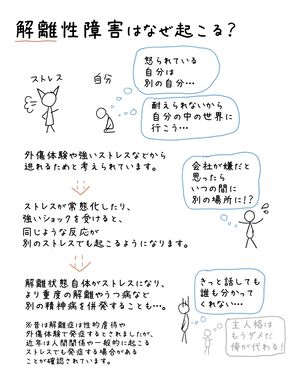 解離性障害はなぜ起こる？
ストレス
自分
怒られている
自分は
別の自分…
耐えられないから
自分の中の世界に
行こう…
外傷体験や強いストレスなどから
逃れるためと考えられています。
会社が嫌だと
思ったら
いつの間に
別の場所に!?
ストレスが常態化したり、
強いショックを受けると、
同じような反応が
別のストレスでも起こるようになります。
解離状態自体がストレスになり、
より重度の解離やうつ病など
別の精神病を併発することも…。
きっと話しても
誰も分かって
くれない…
主人格は
もうダメだ
俺が代わる！
※昔は解離症は性的虐待や
外傷体験で発症するとされましたが、
近年は人間関係や一般的に起こる
ストレスでも発症する場合がある
ことが確認されています。